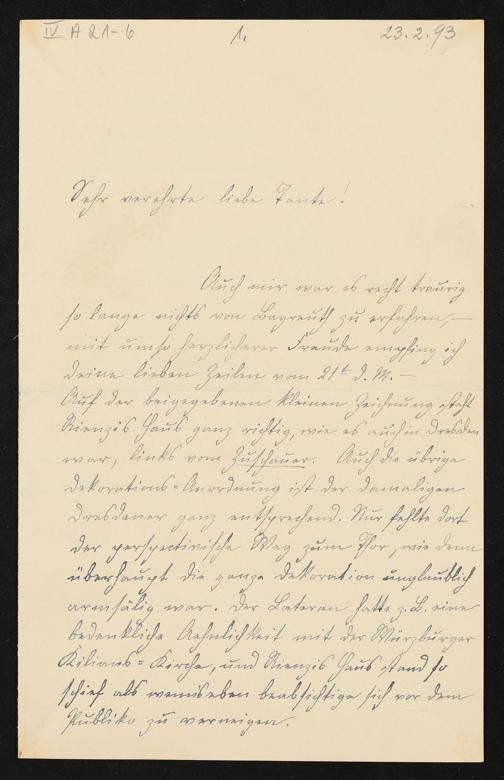 IV A 21-6
1.
23.2.93
Sehr verehrte liebe Tante!
Auch mir war es recht traurig
so lange nichts von Bayreuth zu erfahren, —
mit umso herzlicherer Freude empfing ich
deine lieben Zeilen vom 21t d. M. —
Auf der beigegebenen kleinen Zeichnung steht
Rienzis Haus ganz richtig, wie es auch in Dresden
war, links vom Zuschauer. Auch die übrige
Dekorations-Anordnung ist der damaligen
Dresdener ganz entsprechend. Nur fehlte dort
der perspectivische Weg zum Thor, wie denn
überhaupt die ganze Dekoration unglaublich
armsälig war. Der Lateran hatte z. B. eine
bedenkliche Aehnlichkeit mit der Würzburger
Kilians-Kirche, und Rienzis Haus stand so
schief als wenn's eben beabsichtige sich vor dem
Publiko zu verneigen.